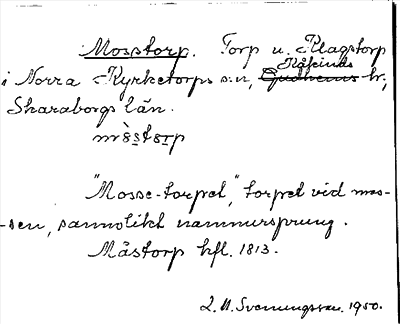 Mosstorp. Torp u. Klagstorp
Kåkinds
i Norra Kyrketorps sn, Gudhems hr,
Skaraborgs län.
"Mosse-torpet," torpet vid mos-
-sen, sannolikt namnursprung.
Måstorp hfl. 1813.
Svenungsson. 1950.